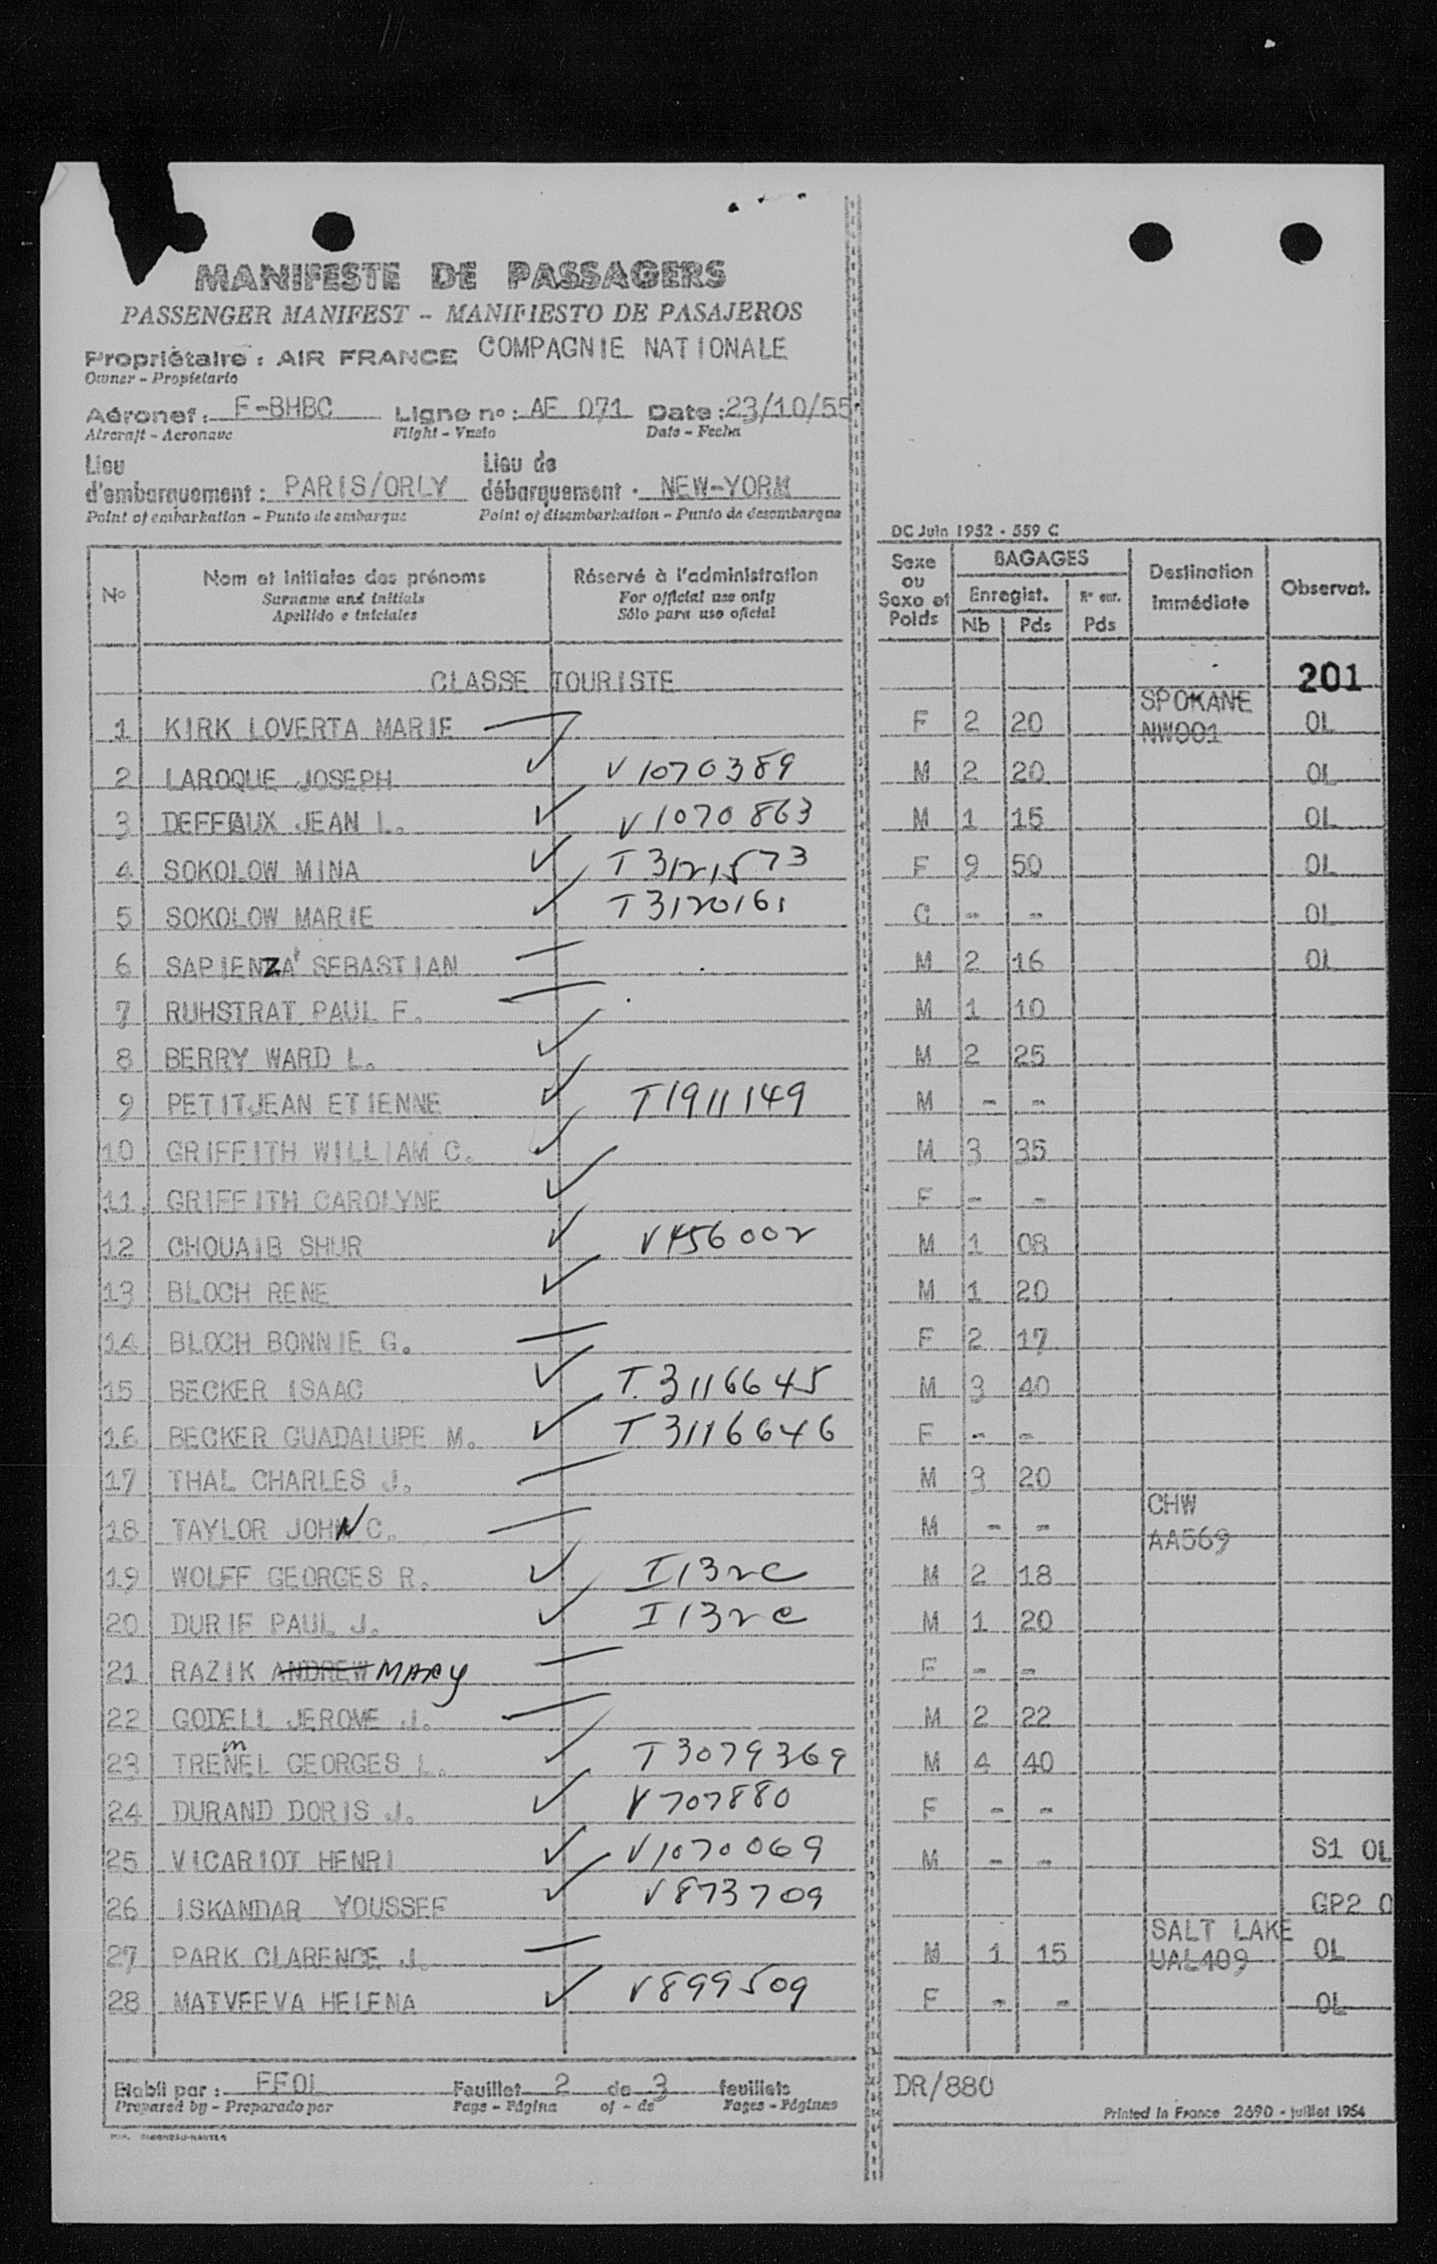 MANIFESTE DE PASSAGERS
PASSENGER MANIFEST - MANIFIESTO DE PASAJEROS
Propriétaire : AIR FRANCE COMPAGNIE NATIONALE
Owner - Propietario
Aéronef : F-BHBC Ligne no : AF 071 Date : 23/10/55
Aircraft - Aeronave Flight - Vuelo Date - Fecha
Lieu d'embarquement : PARIS/ORLY Lieu de débarquement : NEW-YORK
Point of embarkation - Punto de embarque Point of disembarkation - Punto de desembarque
DC Juin 1952 - 559 C
No Nom et initiales des prénoms Réservé à l'administration Sexe ou Sexe et Poids BAGAGES Destination immédiate Observat.
Surname and initials For official use only Enregist.
Apellido e iniciales Sólo para uso oficial Nb Pds Pds
CLASSE TOURISTE 201
1 KIRK LOVERTA MARIE F 2 20 SPOKANE NW001 OL
2 LAROQUE JOSEPH V1070389 M 2 20 OL
3 DEFFAUX JEAN L. V1070863 M 1 15 OL
4 SOKOLOW MINA T3121573 F 9 50 OL
5 SOKOLOW MARIE T3120161 C - - OL
6 SAPIENZA SEBASTIAN M 2 16 OL
7 RUHSTRAT PAUL F. M 1 10
8 BERRY WARD L. M 2 25
9 PETITJEAN ETIENNE T1911149 M - -
10 GRIFFITH WILLIAM C. M 3 35
11. GRIFFITH CAROLYNE F - -
12 CHOUAIB SHUR V456002 M 1 08
13 BLOCH RENE M 1 20
14 BLOCH BONNIE G. F 2 17
15 BECKER ISAAC T.3116645 M 3 40
16 BECKER GUADALUPE M. T3116646 F - -
17 THAL CHARLES J. M 3 20
18 TAYLOR JOHN C. M - - CHW AA569
19 WOLFF GEORGES R. I132C M 2 18
20 DURIF PAUL J. I132C M 1 20
21 RAZIK ANDREW MARY F - -
22 GODELL JEROME J. M 2 22
23 TREMEL GEORGES L. T3079369 M 4 40
24 DURAND DORIS J. V707880 F - -
25 VICARIOT HENRI V1070069 M - - S1 OL
26 ISKANDAR YOUSSEF V873709 GP2 O
27 PARK CLARENCE J. M 1 15 SALT LAKE UAL409 OL
28 MATVEEVA HELENA V899509 F - - OL
Etabli par : FFOL Feuillet 2 de 3 feuillets DR/880
Prepared by - Preparado por Page - Página of - de Pages - Páginas
Printed in France 2690 - juillet 1954